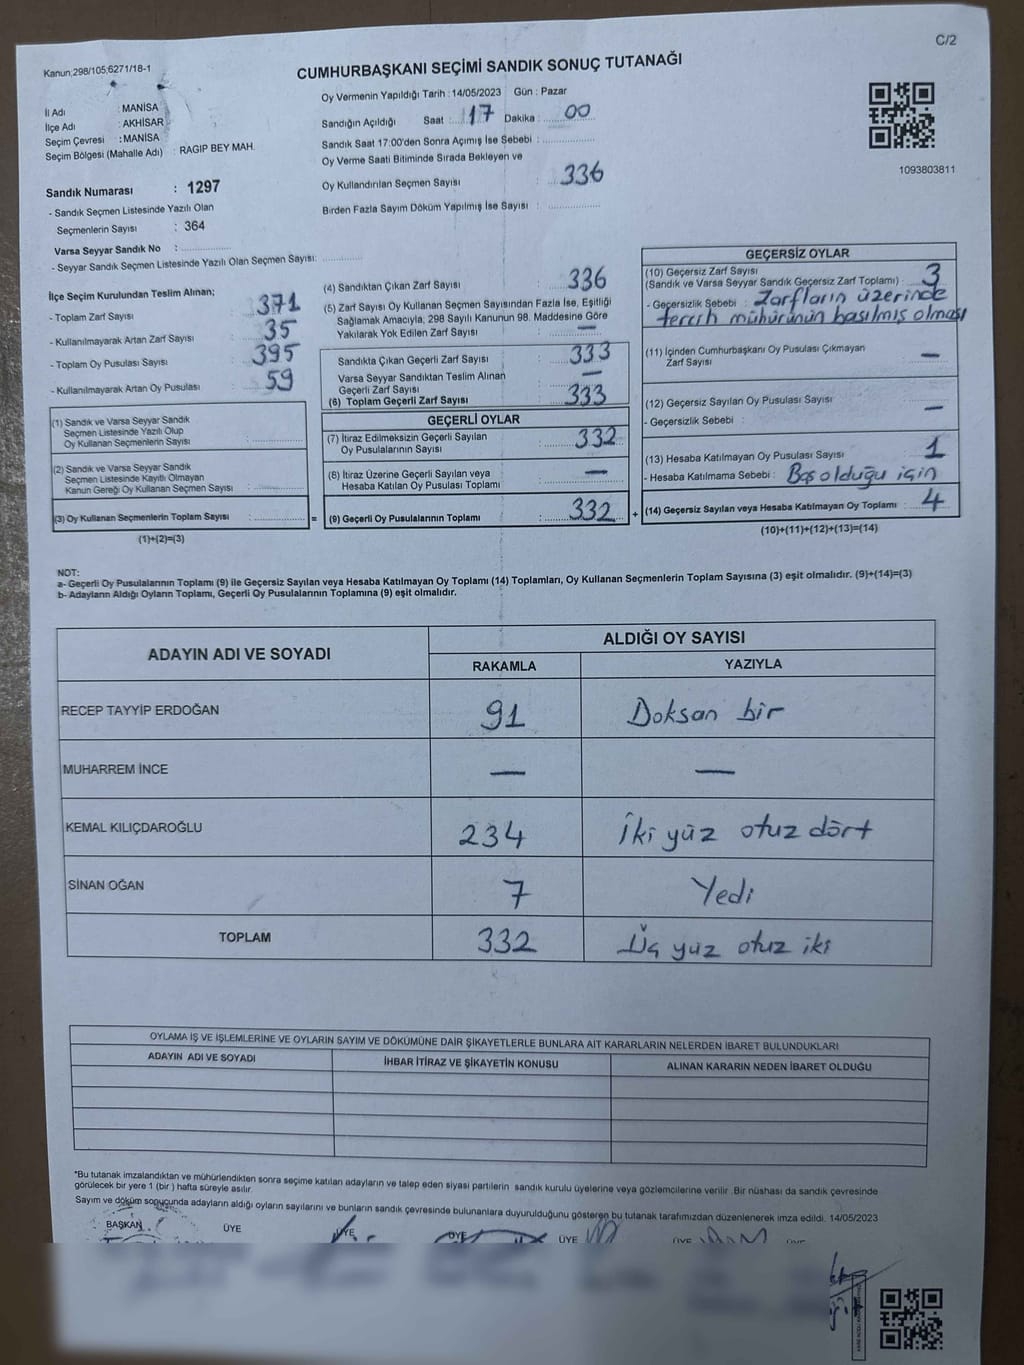 C/2
Kanun;298/105;6271/18-1
CUMHURBAŞKANI SEÇİMİ SANDIK SONUÇ TUTANAĞI
Oy Vermenin Yapıldığı Tarih : 14/05/2023 Gün : Pazar
İl Adı : MANİSA
İlçe Adı : AKHİSAR
Seçim Çevresi : MANİSA
Seçim Bölgesi (Mahalle Adı) : RAGIP BEY MAH.
Sandığın Açıldığı Saat : 17 Dakika : 00
Sandık Saat 17:00'den Sonra Açımış İse Sebebi :
Oy Verme Saati Bitiminde Sırada Bekleyen ve
Oy Kullandırılan Seçmen Sayısı : 336
Birden Fazla Sayım Döküm Yapılmış İse Sayısı :
1093803811
Sandık Numarası : 1297
- Sandık Seçmen Listesinde Yazılı Olan
Seçmenlerin Sayısı : 364
Varsa Seyyar Sandık No :
- Seyyar Sandık Seçmen Listesinde Yazılı Olan Seçmen Sayısı:
İlçe Seçim Kurulundan Teslim Alınan;
- Toplam Zarf Sayısı : 371
- Kullanılmayarak Artan Zarf Sayısı : 35
- Toplam Oy Pusulası Sayısı : 395
- Kullanılmayarak Artan Oy Pusulası : 59
(1) Sandık ve Varsa Seyyar Sandık
Seçmen Listesinde Yazılı Olup
Oy Kullanan Seçmenlerin Sayısı :
(2) Sandık ve Varsa Seyyar Sandık
Seçmen Listesinde Kayıtlı Olmayan
Kanun Gereği Oy Kullanan Seçmen Sayısı :
(3) Oy Kullanan Seçmenlerin Toplam Sayısı : =
(1)+(2)=(3)
(4) Sandıktan Çıkan Zarf Sayısı : 336
(5) Zarf Sayısı Oy Kullanan Seçmen Sayısından Fazla İse, Eşitliği
Sağlamak Amacıyla, 298 Sayılı Kanunun 98. Maddesine Göre
Yakılarak Yok Edilen Zarf Sayısı : —
Sandıkta Çıkan Geçerli Zarf Sayısı : 333
Varsa Seyyar Sandıktan Teslim Alınan
Geçerli Zarf Sayısı : —
(6) Toplam Geçerli Zarf Sayısı : 333
GEÇERLİ OYLAR
(7) İtiraz Edilmeksizin Geçerli Sayılan
Oy Pusulalarının Sayısı : 332
(8) İtiraz Üzerine Geçerli Sayılan veya
Hesaba Katılan Oy Pusulası Toplamı : —
(9) Geçerli Oy Pusulalarının Toplamı : 332 +
GEÇERSİZ OYLAR
(10) Geçersiz Zarf Sayısı
(Sandık ve Varsa Seyyar Sandık Geçersiz Zarf Toplamı) : 3
- Geçersizlik Sebebi : Zarfların üzerinde
tercih mühürünün basılmış olması
(11) İçinden Cumhurbaşkanı Oy Pusulası Çıkmayan
Zarf Sayısı : —
(12) Geçersiz Sayılan Oy Pusulası Sayısı : —
- Geçersizlik Sebebi :
(13) Hesaba Katılmayan Oy Pusulası Sayısı : 1
- Hesaba Katılmama Sebebi : Boş olduğu için
(14) Geçersiz Sayılan veya Hesaba Katılmayan Oy Toplamı : 4
(10)+(11)+(12)+(13)=(14)
NOT:
a- Geçerli Oy Pusulalarının Toplamı (9) ile Geçersiz Sayılan veya Hesaba Katılmayan Oy Toplamı (14) Toplamları, Oy Kullanan Seçmenlerin Toplam Sayısına (3) eşit olmalıdır. (9)+(14)=(3)
b- Adayların Aldığı Oyların Toplamı, Geçerli Oy Pusulalarının Toplamına (9) eşit olmalıdır.
ADAYIN ADI VE SOYADI ALDIĞI OY SAYISI
RAKAMLA YAZIYLA
RECEP TAYYİP ERDOĞAN 91 Doksan bir
MUHARREM İNCE — —
KEMAL KILIÇDAROĞLU 234 İki yüz otuz dört
SİNAN OĞAN 7 Yedi
TOPLAM 332 Üç yüz otuz iki
OYLAMA İŞ VE İŞLEMLERİNE VE OYLARIN SAYIM VE DÖKÜMÜNE DAİR ŞİKAYETLERLE BUNLARA AİT KARARLARIN NELERDEN İBARET BULUNDUKLARI
ADAYIN ADI VE SOYADI İHBAR İTİRAZ VE ŞİKAYETİN KONUSU ALINAN KARARIN NEDEN İBARET OLDUĞU
*Bu tutanak imzalandıktan ve mühürlendikten sonra seçime katılan adayların ve talep eden siyasi partilerin sandık kurulu üyelerine veya gözlemcilerine verilir. Bir nüshası da sandık çevresinde
görülecek bir yere 1 (bir ) hafta süreyle asılır.
Sayım ve döküm sonucunda adayların aldığı oyların sayılarını ve bunların sandık çevresinde bulunanlara duyurulduğunu gösteren bu tutanak tarafımızdan düzenlenerek imza edildi. 14/05/2023
BAŞKAN ÜYE ÜYE ÜYE ÜYE ÜYE